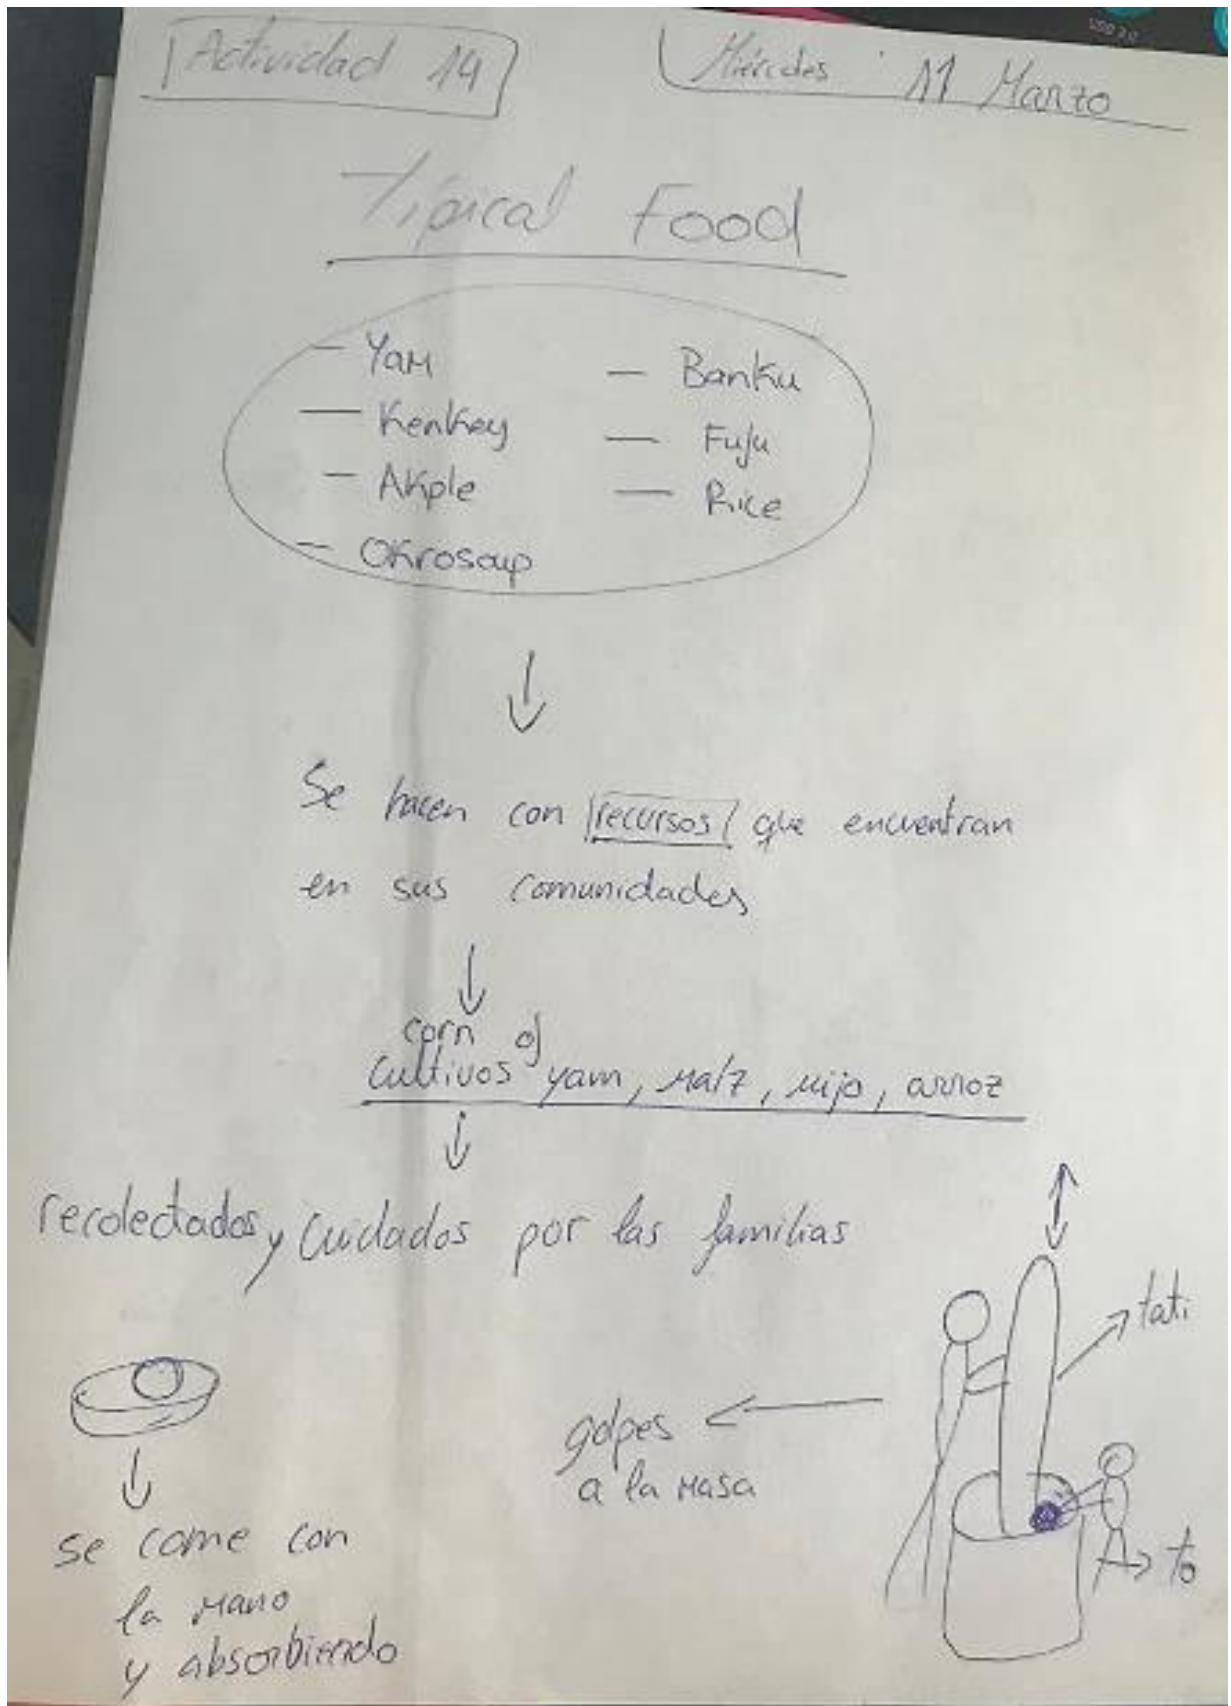 Actividad 14
Miércoles 11 Marzo
Típical Food
- Yam
- Kenkey
- Akple
- Okrosoup
- Banku
- Fufu
- Rice
Se hacen con recursos que encuentran
en sus comunidades
corn of
Cultivos yam, maíz, mijo, arroz
recolectados y cuidados por las familias
tati
golpes
a la masa
to
se come con
la mano
y absorbiendo